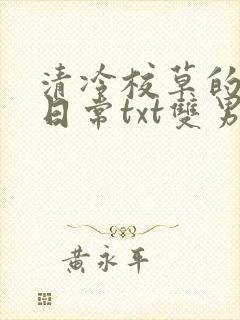 清冷校草的
日常txt雙男
黃永平